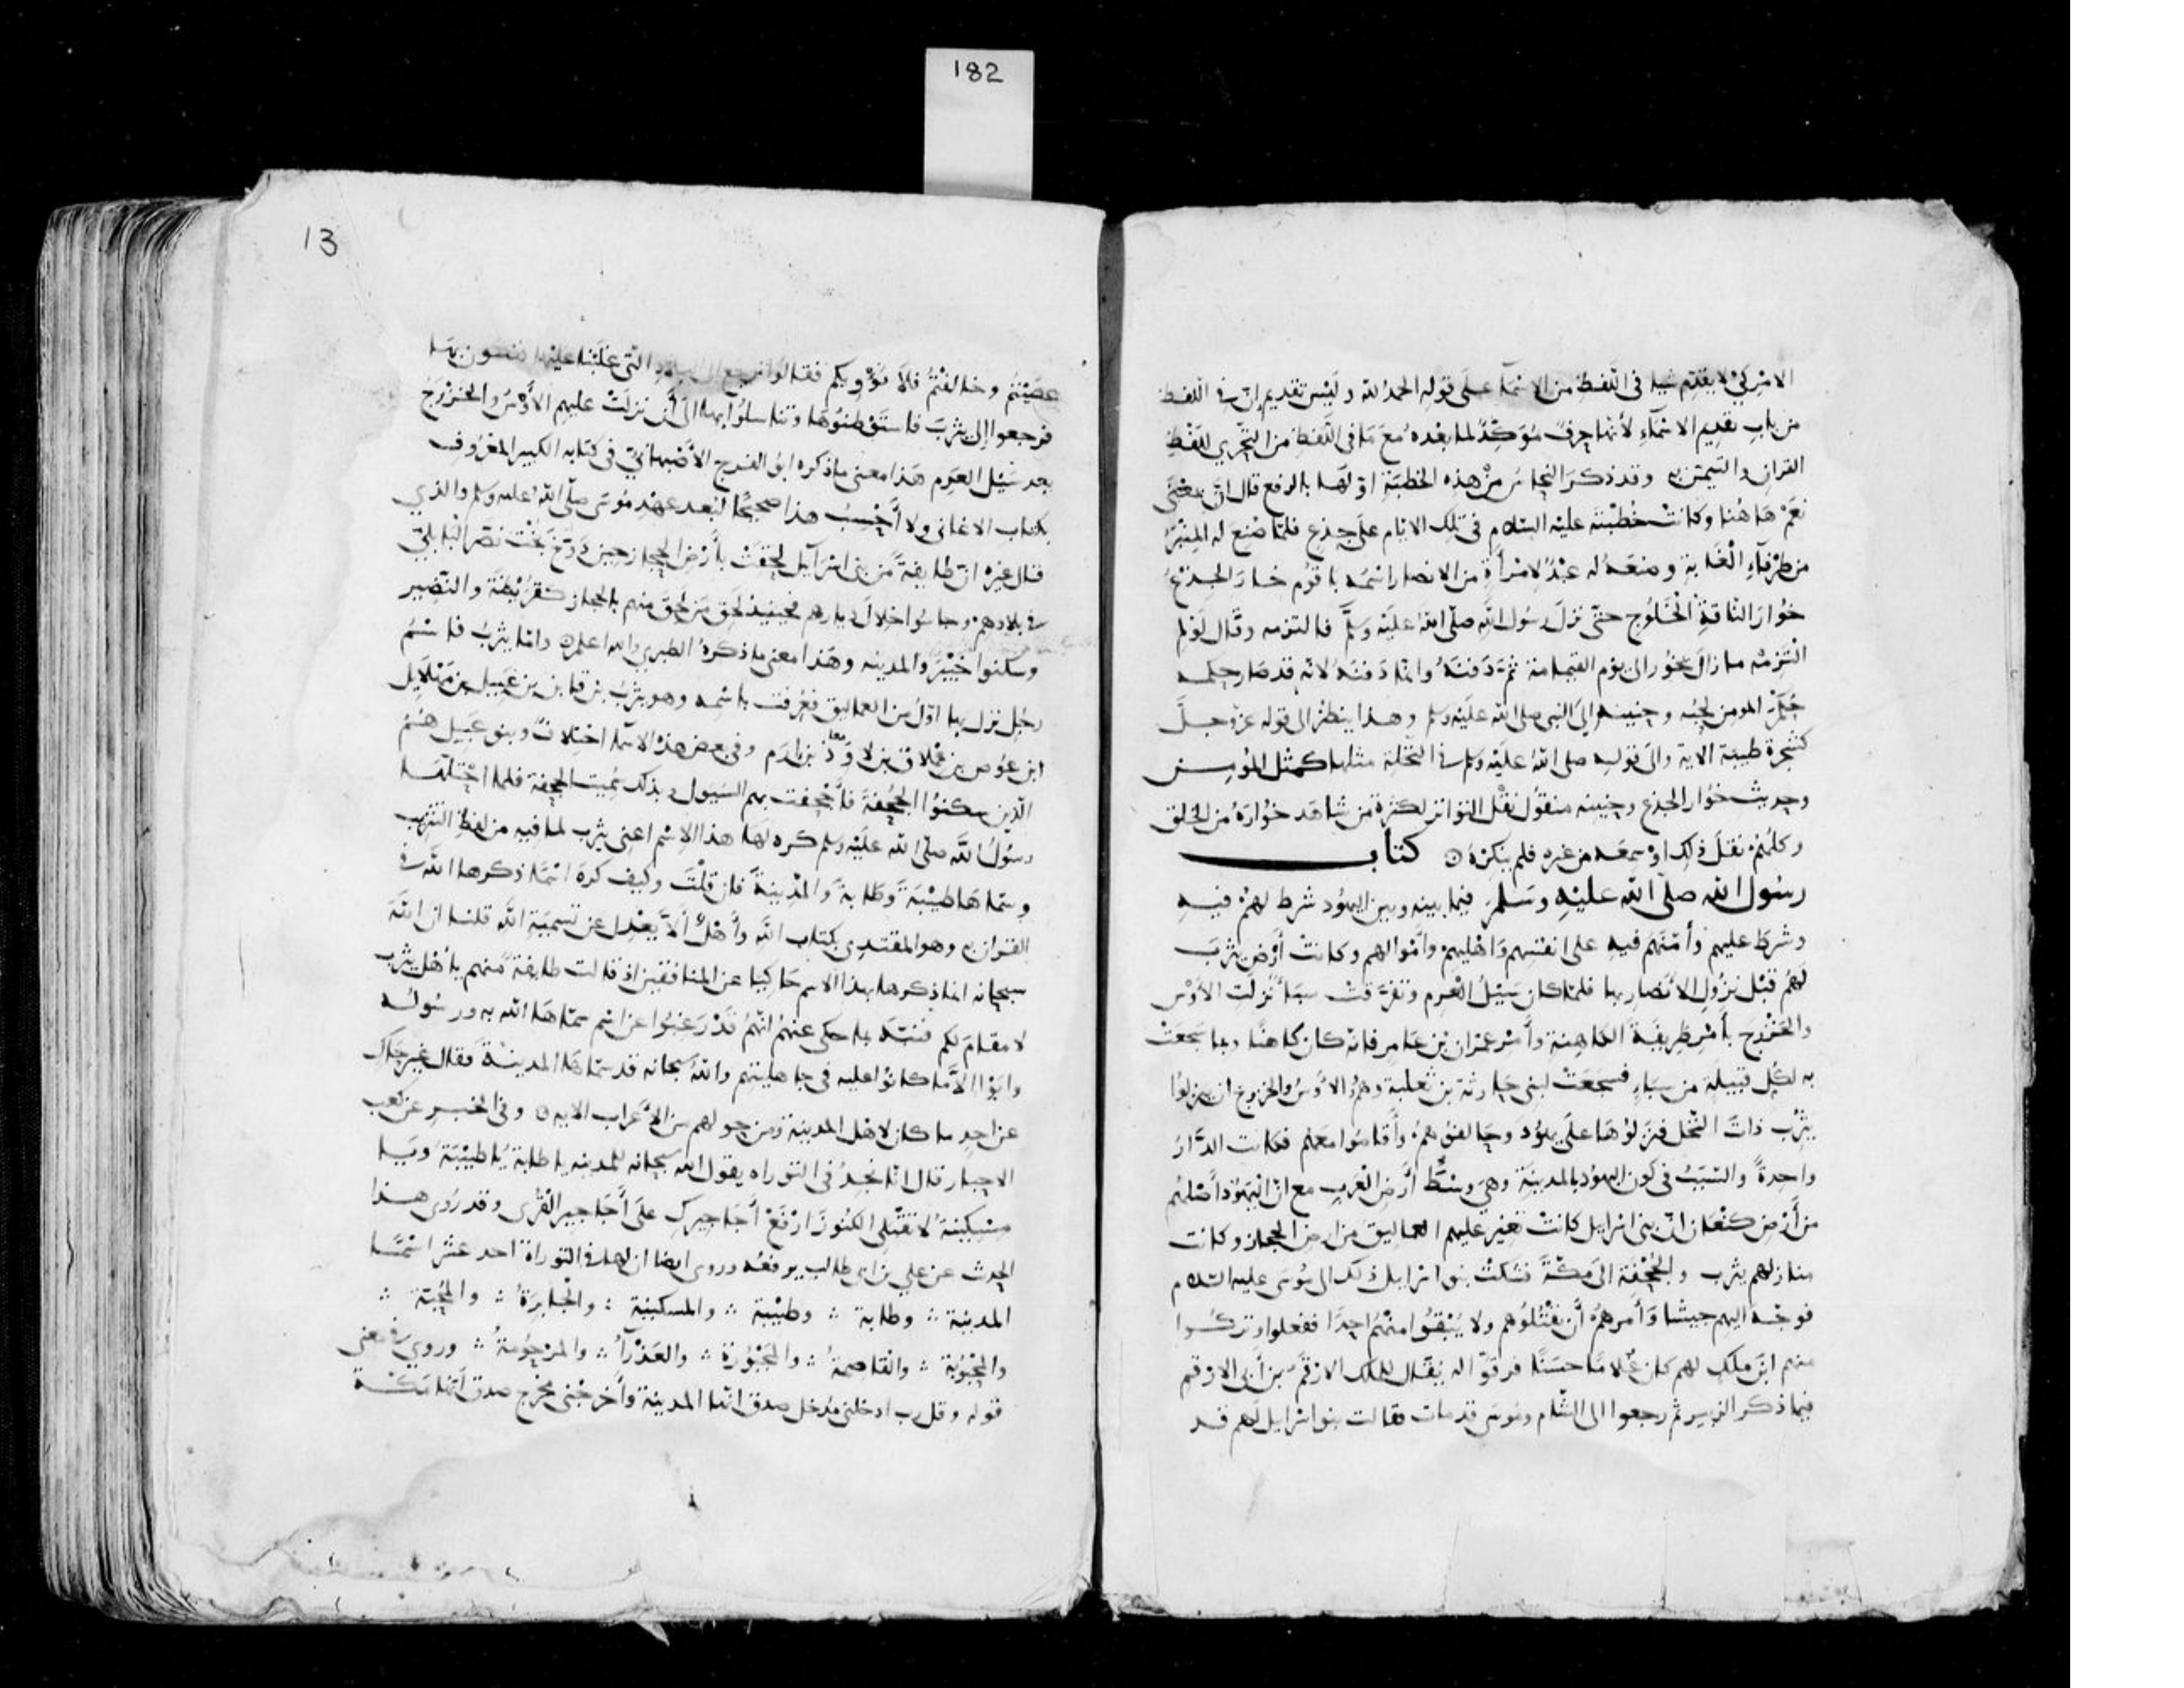 182
الامر كي لا يقدم شيا في اللفظ من الاسمآ على قوله الحمد لله وليس تقديم ان في اللفظ
من باب تقديم الاسمآء لأنها حرف مؤكد لما بعده مع ما في اللفظ من التحري للفظ
القران والتيمن به وقد ذكر النحاس من هذه الخطبة اولها بالرفع قال ان بمعنى
نعم هاهنا وكانت خطبته عليه السلام في تلك الايام على جذع فلما صنع له المنبر
من طرفآء الغابة وصنعه له عبد لامرأة من الانصار اسمه باقوم خار الجذع
خوار الناقة الخلوج حتى نزل رسول الله صلى الله عليه وسلم فالتزمه وقال لو لم
التزمه ما زال يخور الى يوم القيامة ثم دفنه وانما دفنه لانه قد صار حكمه
حكم المومن لحبه وحنينه الى النبي صلى الله عليه وسلم وهذا ينظر الى قوله عز وجل
كشجرة طيبة الاية والى قوله صلى الله عليه وسلم في النخلة مثلها كمثل المؤمن
وحديث خوار الجذع وحنينه منقول نقل التواتر لكثرة من شاهد خواره من الخلق
وكلهم نقل ذلك او سمعه من غيره فلم ينكره كتاب
رسول الله صلى الله عليه وسلم فيما بينه وبين اليهود شرط لهم فيه
وشرط عليهم وأمنهم فيه على انفسهم واهليهم واموالهم وكانت أرض يثرب
لهم قبل نزول الأنصار بها فلما كان سيل العرم وتفرقت سبأ نزلت الأوس
والخزرج بأمر طريفة الكاهنة وأمر عمران بن عامر فانه كان كاهنا وبما سجعت
به لكل قبيلة من سبإ فسجعت لبني حارثة بن ثعلبة وهم الأوس والخزرج ان ينزلوا
يثرب ذات النخل فنزلوها على يهود وحالفوهم وأقاموا معهم فكانت الدار
واحدة والسبب في كون اليهود بالمدينة وهي وسط أرض العرب مع ان اليهود أصلهم
من أرض كنعان ان بني اسرايل كانت تغير عليهم العماليق من ارض الحجاز وكانت
منازلهم يثرب والجحفة الى مكة فشكت بنو اسرايل ذلك الى موسى عليه السلام
فوجه اليهم جيشا وأمرهم أن يقتلوهم ولا يبقوا منهم احدا ففعلوا وتركوا
منهم ابن ملك لهم كان غلاما حسنا فرقوا له يقال للملك الارقم بن أبي الارقم
فيما ذكر الزبير ثم رجعوا الى الشام وموسى قد مات فقالت بنو اسرايل لهم قد
13
عصيتم وخالفتم فلا نؤويكم فقالوا نرجع الى البلاد التي غلبنا عليها فنكون بها
فرجعوا إلى يثرب فاستوطنوها وتناسلوا بها الى أن نزلت عليهم الأوس والخزرج
بعد سيل العرم هذا معنى ما ذكره ابو الفرج الأصبهاني في كتابه الكبير المعروف
بكتاب الاغاني ولا أحسب هذا صحيحا لبعد عهد موسى صلى الله عليه وسلم والذي
قال غيره ان طايفة من بني اسرآيل لحقت بأرض الحجاز حين دوخ بخت نصر البابلي
في بلادهم وجاسوا خلال ديارهم فحينيذ لحق من لحق منهم بالحجاز كقريظة والنضير
وسكنوا خيبر والمدينه وهذا معنى ما ذكره الطبري والله اعلم واما يثرب فاسم
رجل نزل بها اول من العماليق فعرفت باسمه وهو يثرب بن قاين بن عبيل بن مهلايل
ابن عوص بن عملاق بن لاوذ بن ارم وفي بعض هذه الاسمآ اختلاف وبنو عبيل هم
الذين سكنوا الجحفة فأجحفت بهم السيول وبذلك سميت الجحفة فلما احتلها
رسول الله صلى الله عليه وسلم كره لها هذا الاسم اعني يثرب لما فيه من لفظ التثريب
وسماها طيبة وطابة والمدينة فان قلت وكيف كره اسما ذكرها الله في
القرآن به وهو المقتدي بكتاب الله وأهل ألا يعدل عن تسمية الله قلنا ان الله
سبحانه انما ذكرها بهذا الاسم حاكيا عن المنافقين اذ قالت طايفة منهم يا أهل يثرب
لا مقام لكم فنبه بما حكى عنهم انهم قد رغبوا عن اسم سماها الله به ورسوله
وابوا إلا ما كانوا عليه في جاهليتهم والله سبحانه قد سماها المدينة فقال غير حاك
عن احد ما كان لاهل المدينة ومن حولهم من الأعراب الايه وفي الخبر عن كعب
الاحبار قال انا نجد في التوراه يقول الله سبحانه للمدينه يا طابة يا طيبة ويا
مسكينة لا تقبلي الكنوز ارفع أجاجيرك على أجاجير القرى وقد روي هذا
الحديث عن علي بن ابي طالب يرفعه وروى ايضا ان لها في التوراة احد عشر اسما
المدينة وطابة وطيبة والمسكينة والجابرة والمحبة
والمحبوبة والقاصمة والمجبورة والعذرآ والمرحومة وروي في معنى
قوله وقل رب ادخلني مدخل صدق انها المدينة وأخرجني مخرج صدق أنها مكة